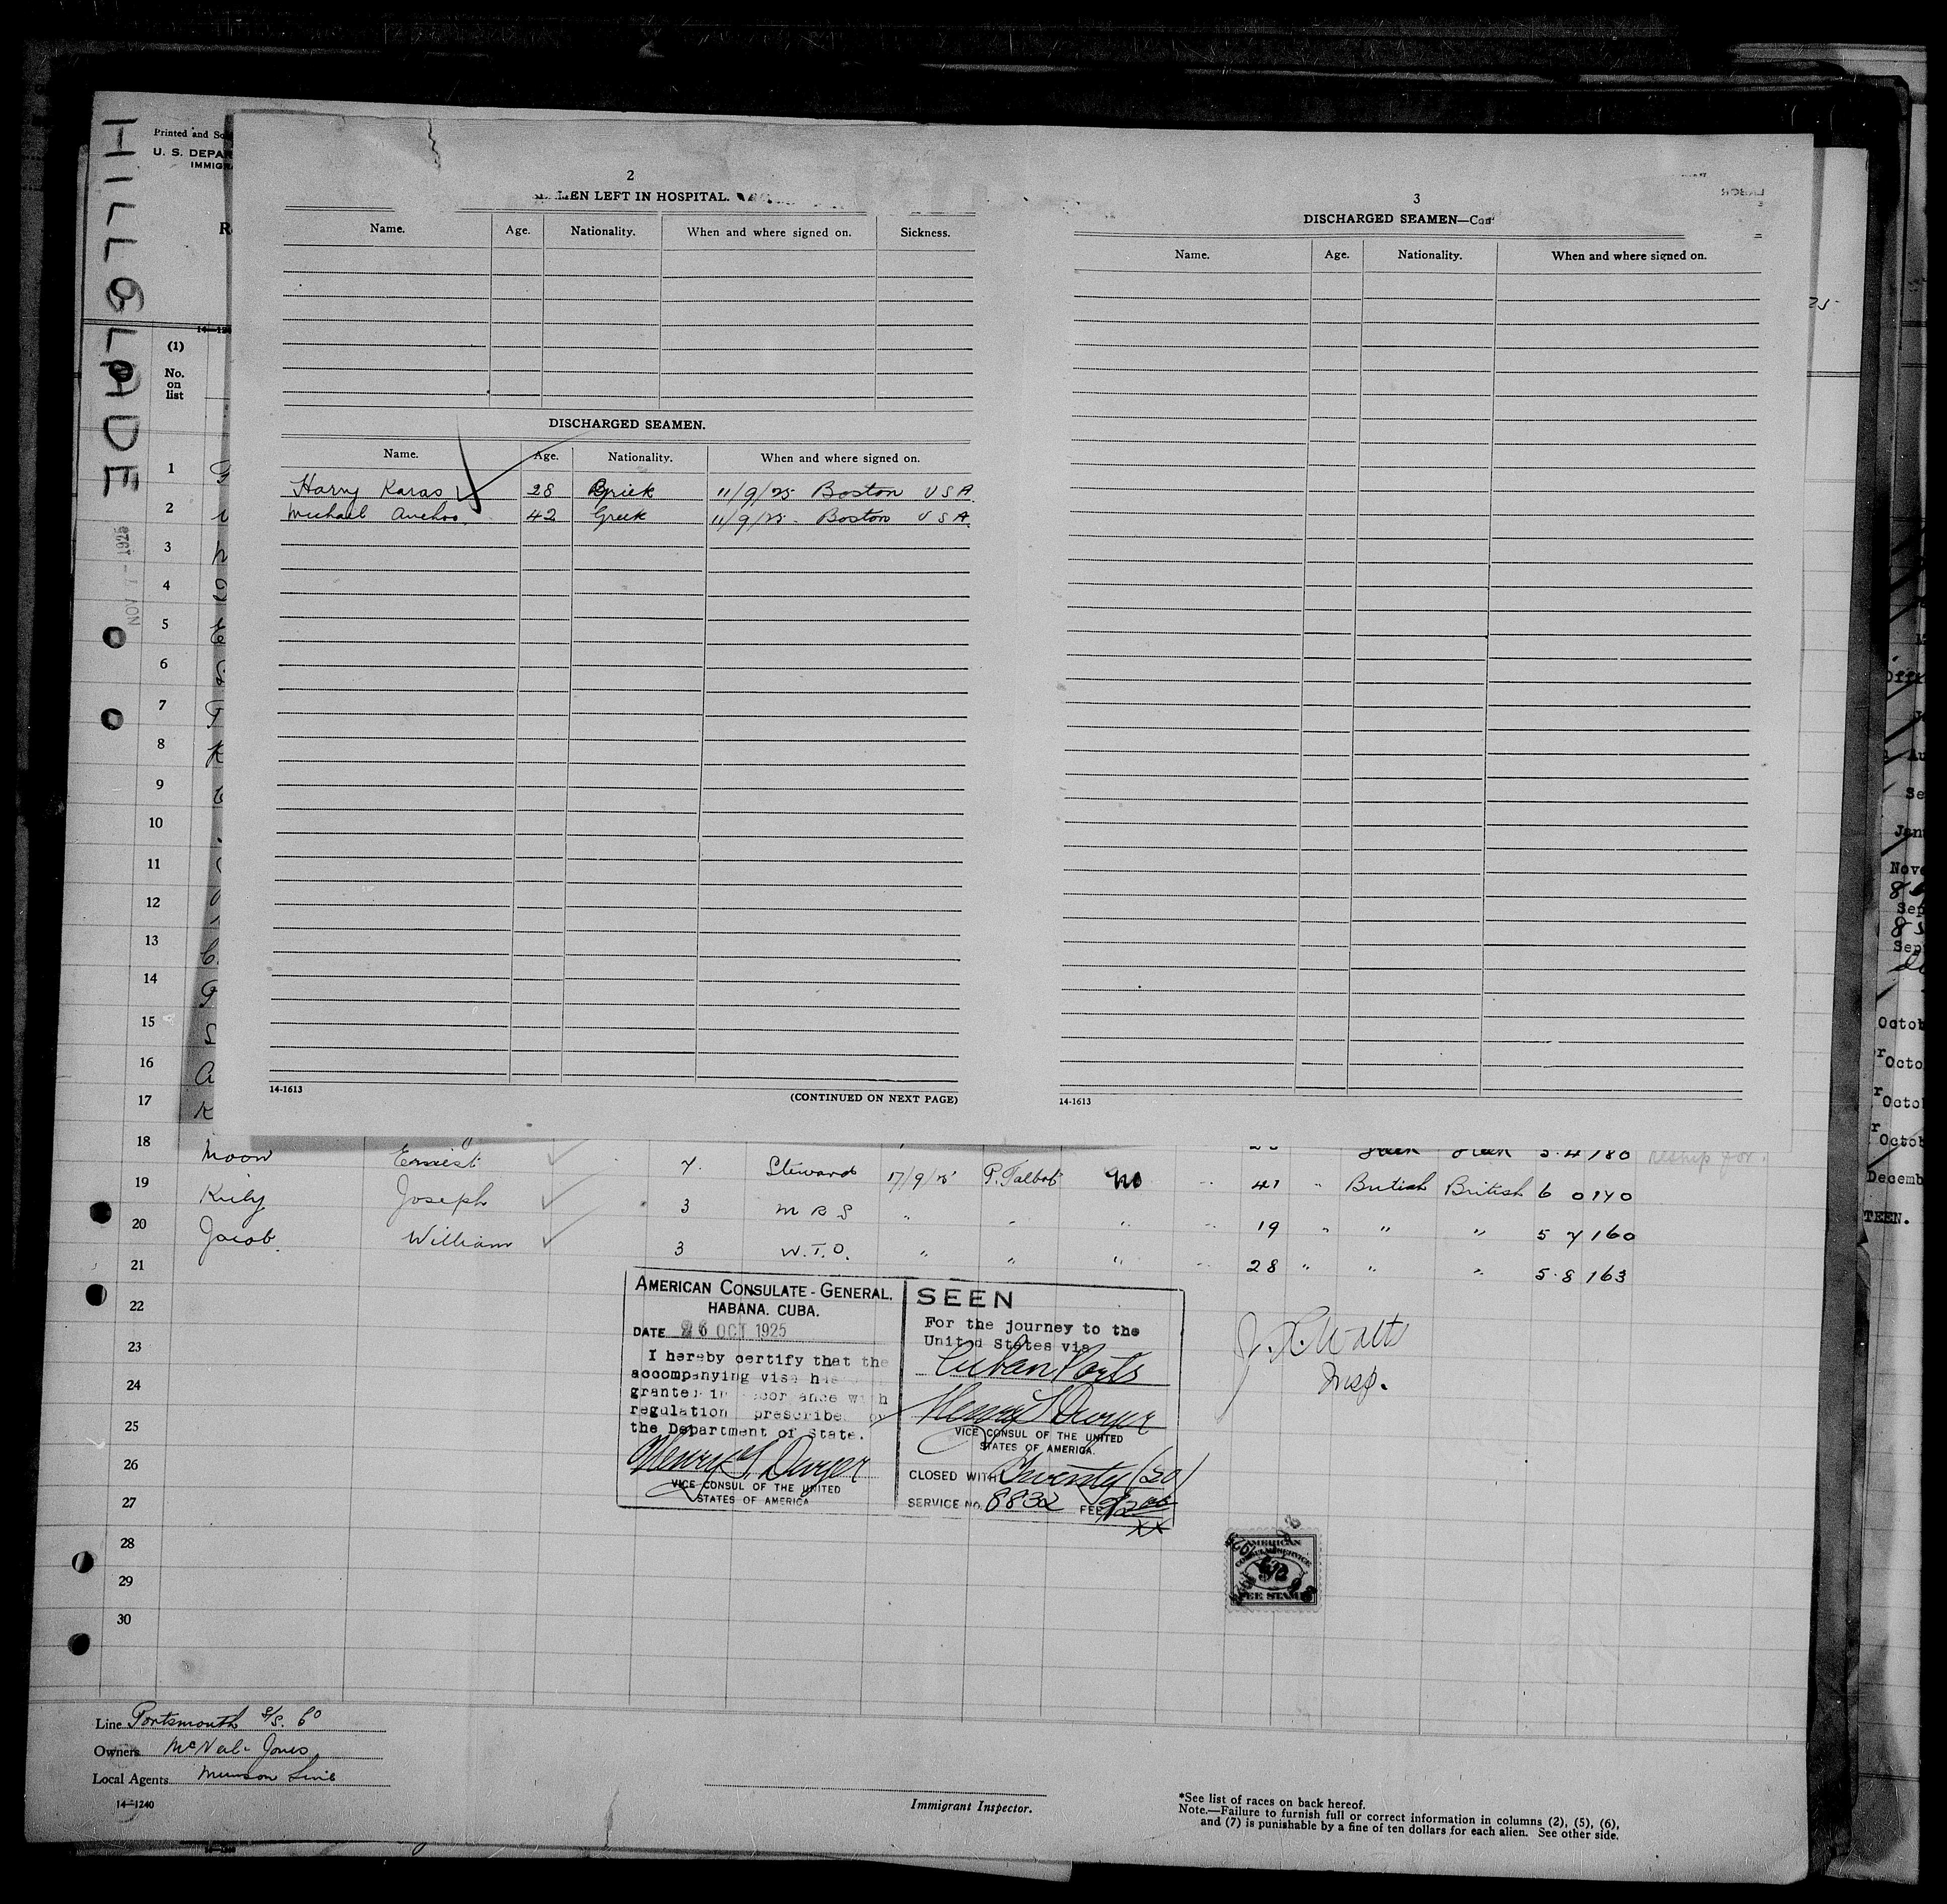 HILLGLADE
NOV 7 - 1925
Printed and So
U. S. DEPAR
IMMIGRA
(1)
No.
on
list
1
2
3
4
5
6
7
8
9
10
11
12
13
14
15
16
17
2
MEN LEFT IN HOSPITAL.
Name. Age. Nationality. When and where signed on. Sickness.
DISCHARGED SEAMEN.
Name. Age. Nationality. When and where signed on.
Harry Karas 28 Griek 11/9/25 Boston USA
Michael 42 Greek 11/9/25 - Boston USA
14-1613
(CONTINUED ON NEXT PAGE)
3
DISCHARGED SEAMEN—Con
Name. Age. Nationality. When and where signed on.
14-1613
18 5 4 180
19 Moon Ernest 7. Steward 17/9/25 P. Talbot no 41 " British British 6 0 170
20 Joseph 3 M R S " " " " 19 " " " 5 7 160
21 Jacob William 3 W.T.O. " " " " 28 " " " 5 8 163
22
23
24
25
26
27
28
29
30
AMERICAN CONSULATE - GENERAL.
HABANA. CUBA.
DATE 26 OCT 1925
I hereby certify that the
accompanying visa has
granted in accordance with
regulation prescribed by
the Department of State.
Henry T. Dwyer
VICE CONSUL OF THE UNITED
STATES OF AMERICA
SEEN
For the journey to the
United States via
Cuban Ports
Henry T. Dwyer
VICE CONSUL OF THE UNITED
STATES OF AMERICA.
CLOSED WITH Twenty (20)
SERVICE NO. 8832 FEE $2.00
XX
Watts
Insp.
AMERICAN
CONSULAR SERVICE
FEE STAMP
Line Portsmouth S/S. Co
Owners McNeil-Jones
Local Agents Munson Line
14-1240
Immigrant Inspector.
*See list of races on back hereof.
Note.—Failure to furnish full or correct information in columns (2), (5), (6),
and (7) is punishable by a fine of ten dollars for each alien. See other side.
Octob
Octo
Octo
Octob
Decemb
TEEN.